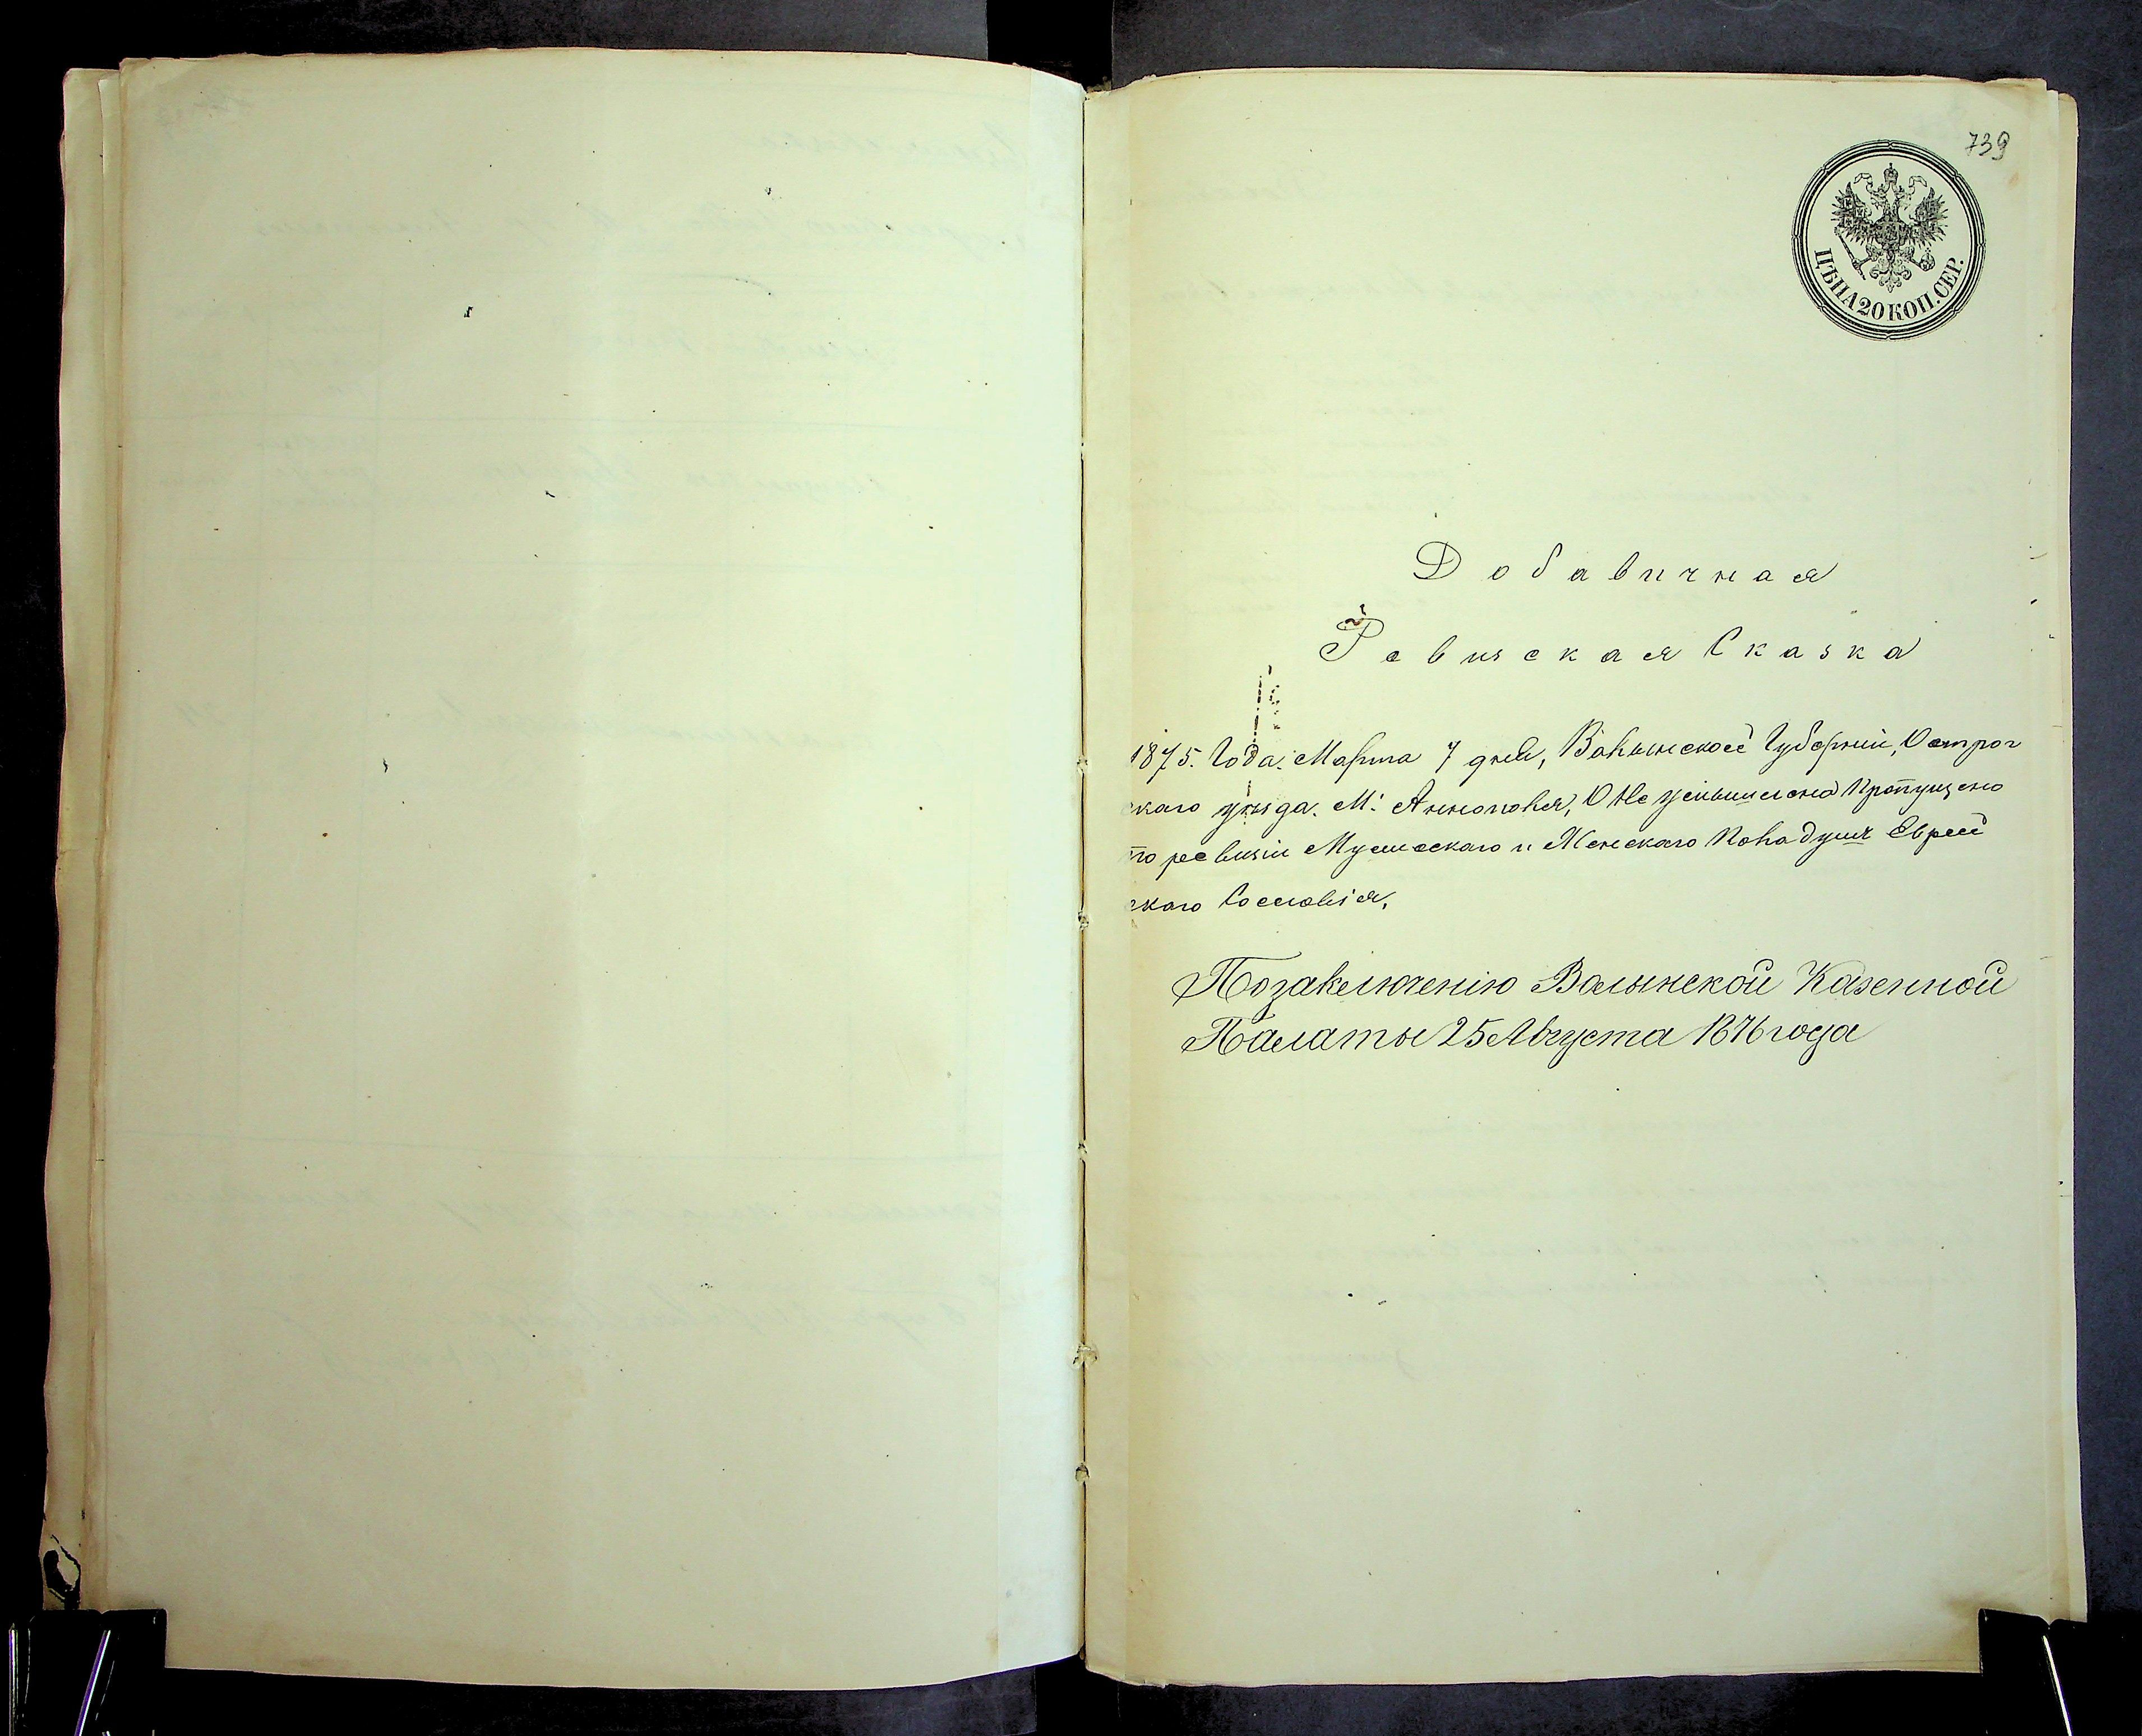 739
ЦѢНА 20 КОП. СЕР.
Добавичная
Ревиская Сказка
1875. Года. Марта 7 дня, Волынской Губернии, Острог
скаго уѣзда. М: Аннополя, О Не
по ревизiи Мужескаго и Женскаго Пола душъ Еврей
скаго Сословiя,
По заключенiю Волынской Казенной
Палаты 25 Августа 1876 года